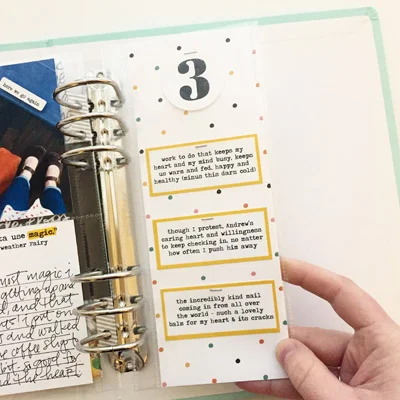 here we go again
ka use magic.
weather Fairy
most magic
getting up and
and that
I put on
and walked
coffee shop to
3
work to do that keeps my
heart and my mind busy, keeps
us warm and fed, happy and
healthy (minus this darn cold)
though I protest, Andrew's
caring heart and willingness
to keep checking in, no matter
how often I push him away
the incredibly kind mail
coming in from all over
the world - such a lovely
balm for my heart & its cracks